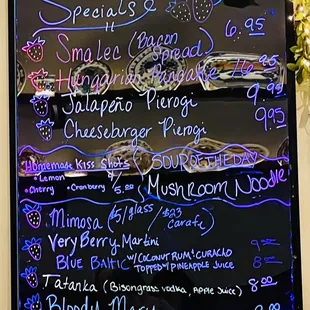 Specials
Smalec (Bacon Spread) 6.95
Hungarian Pancake 16.95
Jalapeño Pierogi 9.95
Cheeseburger Pierogi 9.95
Homemade Kiss Shots
• Lemon
• Cherry • Cranberry 5.00
SOUP OF THE DAY
MUSHROOM NOODLE
Mimosa ($5/glass / $23 carafe)
Very Berry Martini
BLUE BALTIC W/ COCONUT RUM & CURACAO
TOPPED W/ PINEAPPLE JUICE
Tatanka (Bisongrass vodka, Apple Juice) 8.00
Bloody Mary